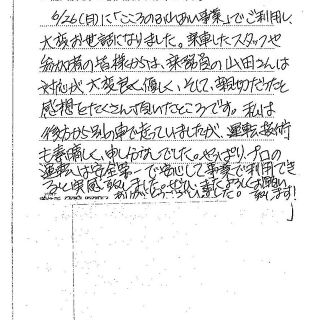 6/26(日)に「こころのふれあい事業」でご利用し、
大変お世話になりました。乗車したスタッフや
参加者の皆様からは、乗務員の山田さんは
対応が大変良く優しく、そして、親切だったと
感想をたくさん頂いたところです。私は
後方から別の車で走っていましたが、運転技術
も素晴しく、申し分なしでした。やっぱり、プロの
運転は安全第一で安心して事業で利用でき
ると実感致しました。ぜひ、またよろしくお願い
ありがとうございました。 致します!